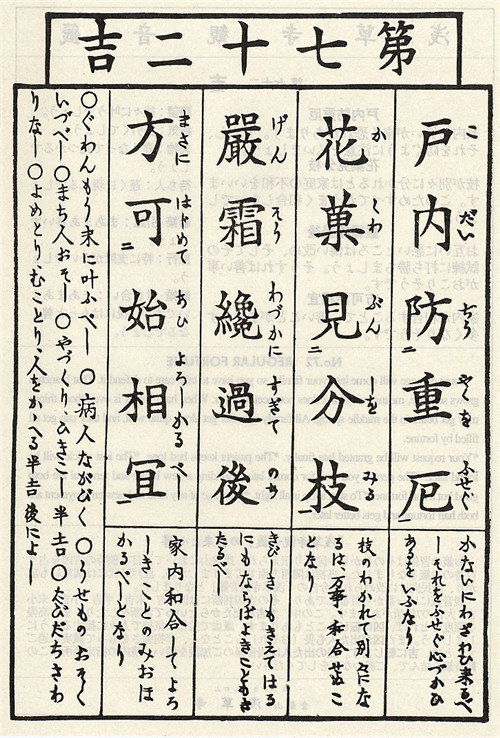 第七十二吉
こ だい ぢう やくを ふせぐ
戸内防二重厄一
か くわ ぶん しを みる
花菓見二分枝一
げん そう わづかに すぎて のち
嚴霜纔過後
まさに はじめて あひ よろしかるべし
方可二始相宜一
かないにわざわひ来るべ
しそれをふせぐ心づかひ
あるをいふなり
枝のわかれて別々にな
るは、万事、和合せぬこ
となり
きびしきしもきえてはる
にもならばよきこともき
たるべし
家内和合してよろ
しきことのみおほ
かるべしとなり
〇ぐわんもう末に叶ふべし 〇病人ながびく 〇うせものおそく
いづべし〇まち人おそし 〇やづくりひきこし半吉 〇たびだちさわ
りなし〇よめとり、むことり、人をかゝへる半吉後によし